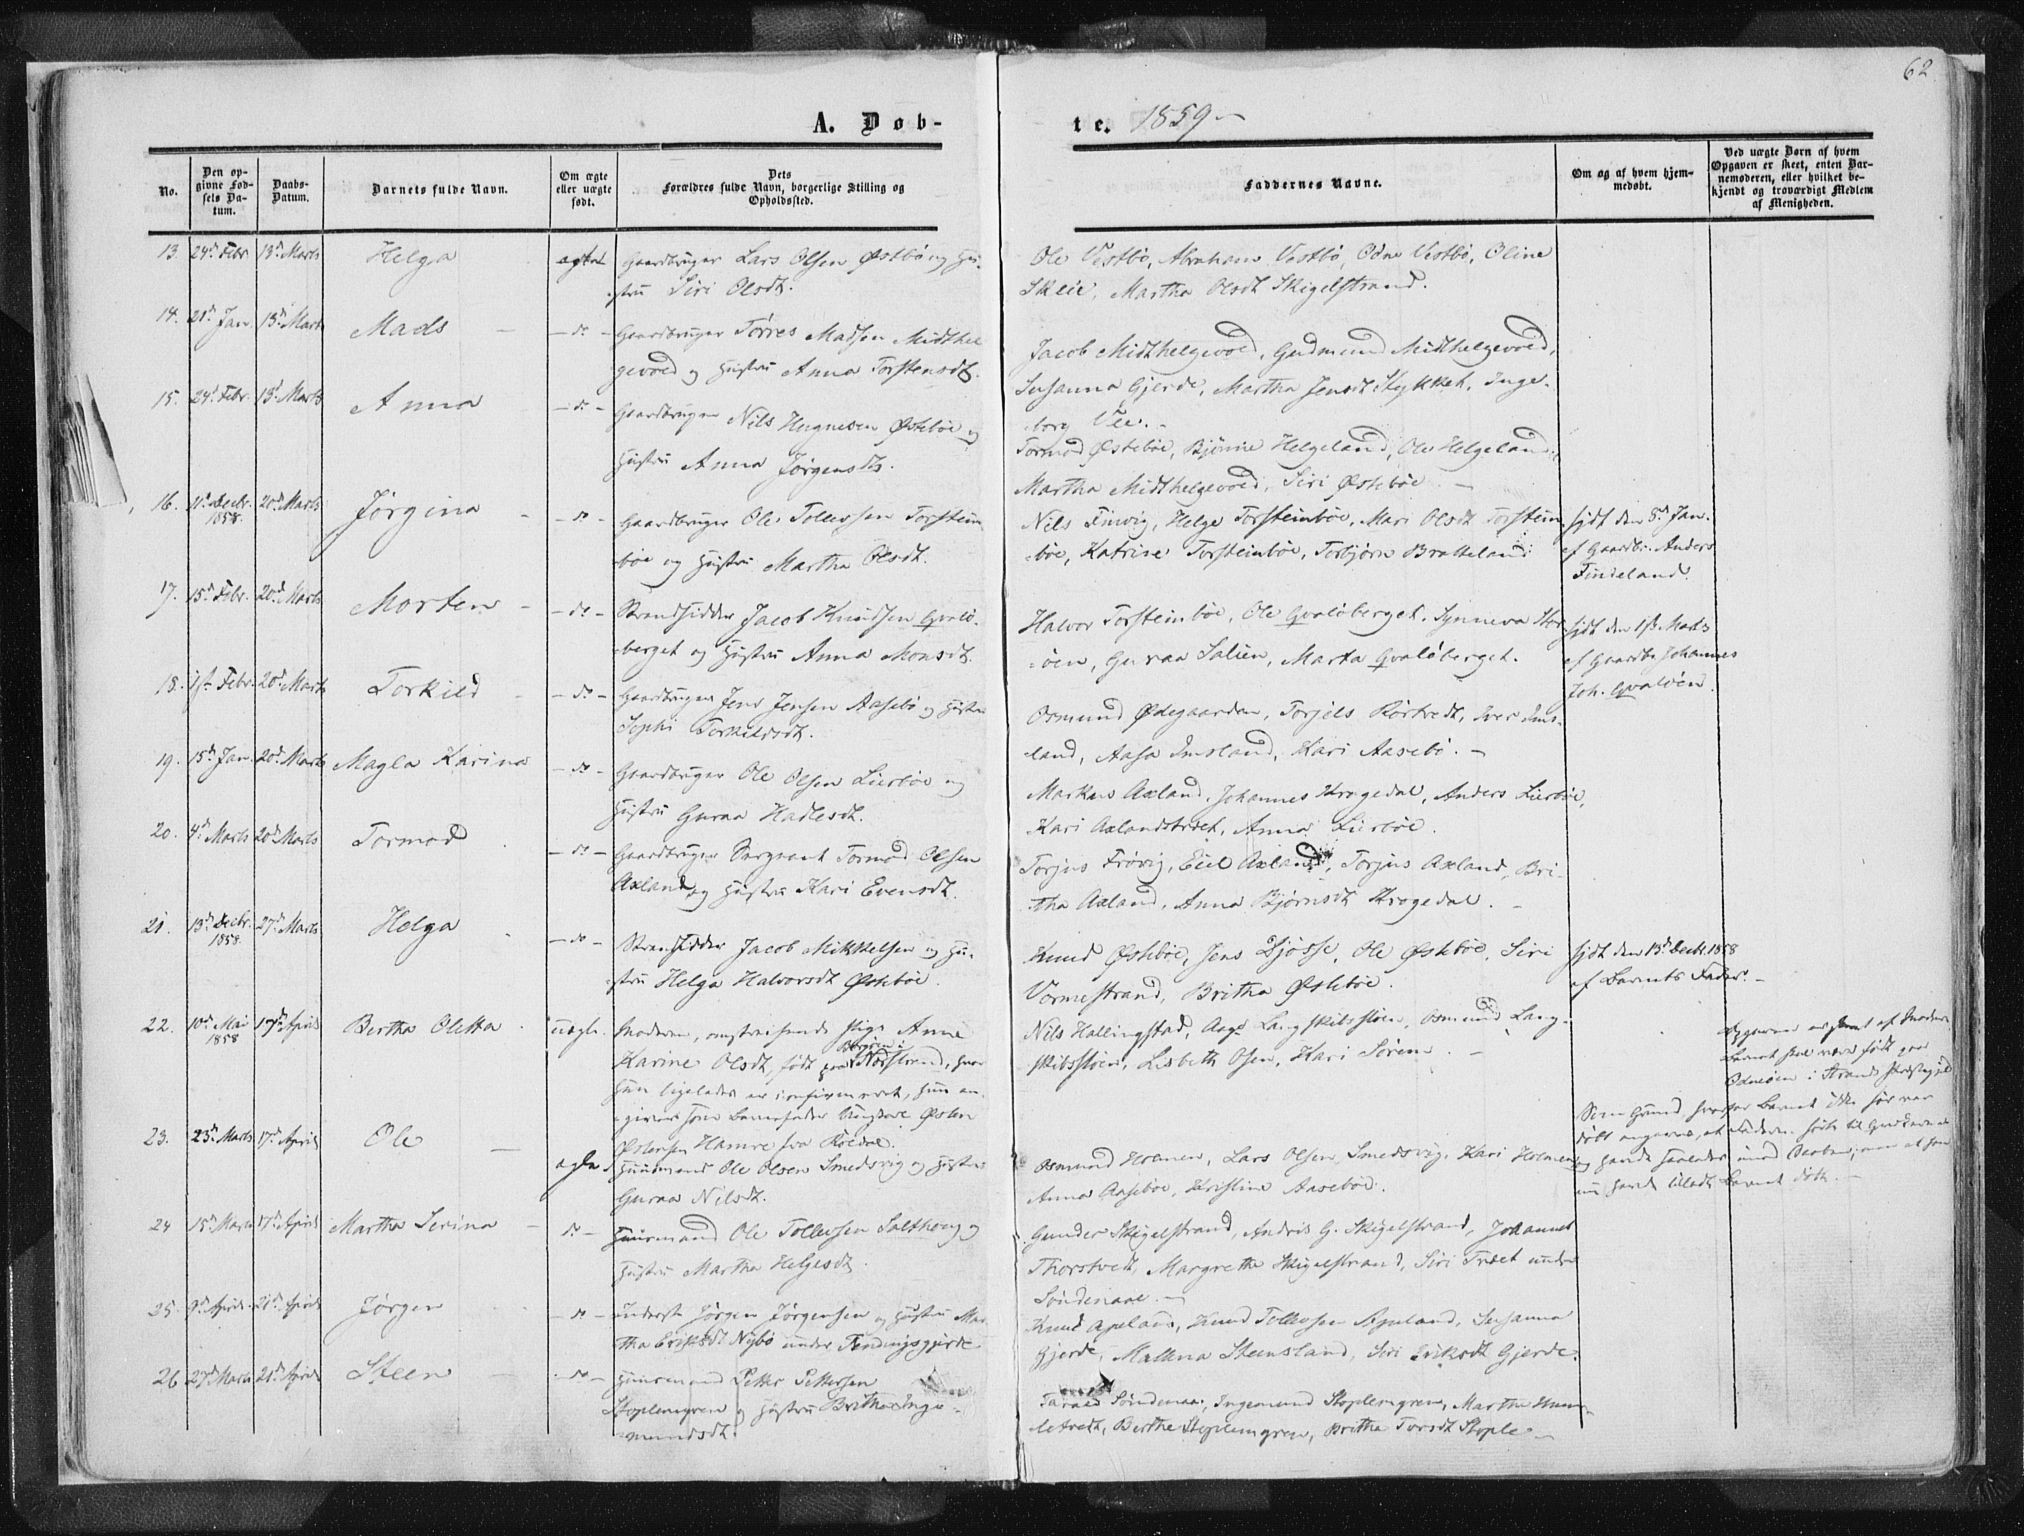 62
A. Døb-
te. 1859
No.
Den op-
givne Fød-
sels Da-
tum.
Daabs-
Datum.
Barnets fulde Navn.
Om ægte
eller uægte
født.
Dets
Forældres fulde Navn, borgerlige Stilling og
Opholdssted.
Faddernes Navne.
Om og af hvem hjem-
medøbt.
Ved uægte Børn af hvem
Opgaven er skeet, enten Bar-
nemoderen, eller hvilket be-
kjendt og troværdigt Medlem
af Menigheden.
13. 24d Febr 13d Marts Helga ægte Gaardbruger Lars Olsen Østbø og Hu-
stru Siri Olsdt.
Ole Vestbø, Abraham Vestbø, Odne Vestbø, Oline
Sklie, Martha Olsdt Skigelstrand.
14. 21d Jan 13d Marts Mads - do - Gaardbruger Tørres Madsen Midthel
gevold og Hustru Anna Torstensdt.
Jacob Midthelgevold, Gudmund Midthelgevold,
Susanna Gjerde, Martha Jensdt Stykket, Inge-
borg Vee.
15. 24d Febr. 13d Marts Anna - do - Gaardbruger Nils Hugnesen Østebøe og
Hustru Anna Jørgensdt.
Tormod Østebøe, Bjørne Helgeland, Ole Helgeland,
Martha Midthelgevold, Siri Østebøe
16. 11d Decbr. 20d Marts Jørgina - do - Gaardbruger Ole Tollevsen Torstein
1858.
bøe og Hustru Martha Olsdt.
Nils Finvig, Helge Torsteinbøe, Mari Olsdt Torstein
bøe, Katrine Torsteinbøe, Torbjørn Bratteland
hjdt den 8d Jan.
af Gaardbr. Anders
Findeland.
17. 15d Febr. 20d Marts Morten - do - Strandsidder Jacob Knudsen Qvalø-
berget og Hustru Anna Monsdt.
Halvor Torsteinbøe, Ole Qvaløberget, Synneva Hor-
øen, Guraa Salien, Marta Qvaløberget.
hjdt den 1ste Marts
af Gaardbr Johannes
Joh. Qvaløen.
18. 1ste Febr. 20d Marts Torkild - do - Gaardbruger Jens Jensen Aasebø og Hustru
Sophi Torkildsdt.
Osmund Ødegaarden, Torjels Rørtvedt, Iver Ims-
land, Aasa Imsland, Kari Aasebø.
19. 15d Jan 20d Marts Magla Karina - do - Gaardbruger Ole Olsen Lierbøe og
Hustru Guraa Hadlesdt.
Markus Axland, Johannes Krogedal, Anders Lierbøe,
Kari Axlandstræet, Anna Lierbøe.
20. 4d Marts 20d Marts Tormod - do - Gaardbruger Sergeant Tormod Olsen
Axland og Hustru Kari Evensdt.
Torjus Frøvig, Eiel Axland, Torjus Axland, Bri-
tha Axland, Anna Bjørnsdt Krogedal.
21. 13d Decbr. 27d Marts Helga - do - Strandsidder Jacob Mikkelsen og Hu-
1858.
stru Helga Halvorsdt Østebøe.
Knud Østebøe, Jens Djøsse, Ole Østebøe, Siri
Vormestrand, Britha Østebøe.
hjdt den 13d Decbr. 1858
af Barnets Fader.
22. 10d Mai 17d April Bertha Oletta uægte. Moderen, omstreifende Pige Anne
1858
Karine Olsdt, født paa Nordstrand, hvor
hun ligeledes er confirmeret, hun an-
giver som Barnefader Ungkarl Østen
Østensen Hamre fra Røldal.
Nils Hallingstad, Aage Langskibsstøen, Osmund Lang-
skibsstøen, Lisbeth Osen, Kari Sørem.
Opgaven er skeet af Moderen
Barnet skal være født paa
Odneøen i Strands Præstegjeld
Som Grund hvorfor Barnet ikke før var
døbt angaves, at
nu havde tilladt Barnet døbt.
23. 23d Marts 17d April Ole ægte Huusmand Ole Olsen Smedsvig og Hustru
Guraa Nilsdt.
Osmund Holmen, Lars Olsen Smedsvig, Kari Holmen,
Anna Aasebøe, Kristine Aasebøe.
24 15d Marts 17d April Martha Serina - do - Huusmand Ole Tollevsen Salthoug og
Hustru Martha Helgesdt.
Gunder Skigelstrand, Andris G. Skigelstrand, Johannes
Thorstvedt, Margrethe Skigelstrand, Siri Træet under
Søndenaae.
25. 9d April 21d April Jørgen - do - Inderst Jørgen Jørgensen og Hustru Mar-
tha Eriksdt Nybø under Findingsgjerde
Knud Apeland, Knud Tollevsen Apeland, Susanna
Gjerde, Mallena Steensland, Siri Eriksdt Gjerde.
26 27d Marts 21d April Steen - do - Huusmand Peder Pettersen
Stoplemgren og Hustru Britha Inge-
mundsdt.
Tarald Søndenaa, Ingemund Stoplemgren, Martha Hum-
letvedt, Berthe Stoplemgren, Britha Torsdt Stople